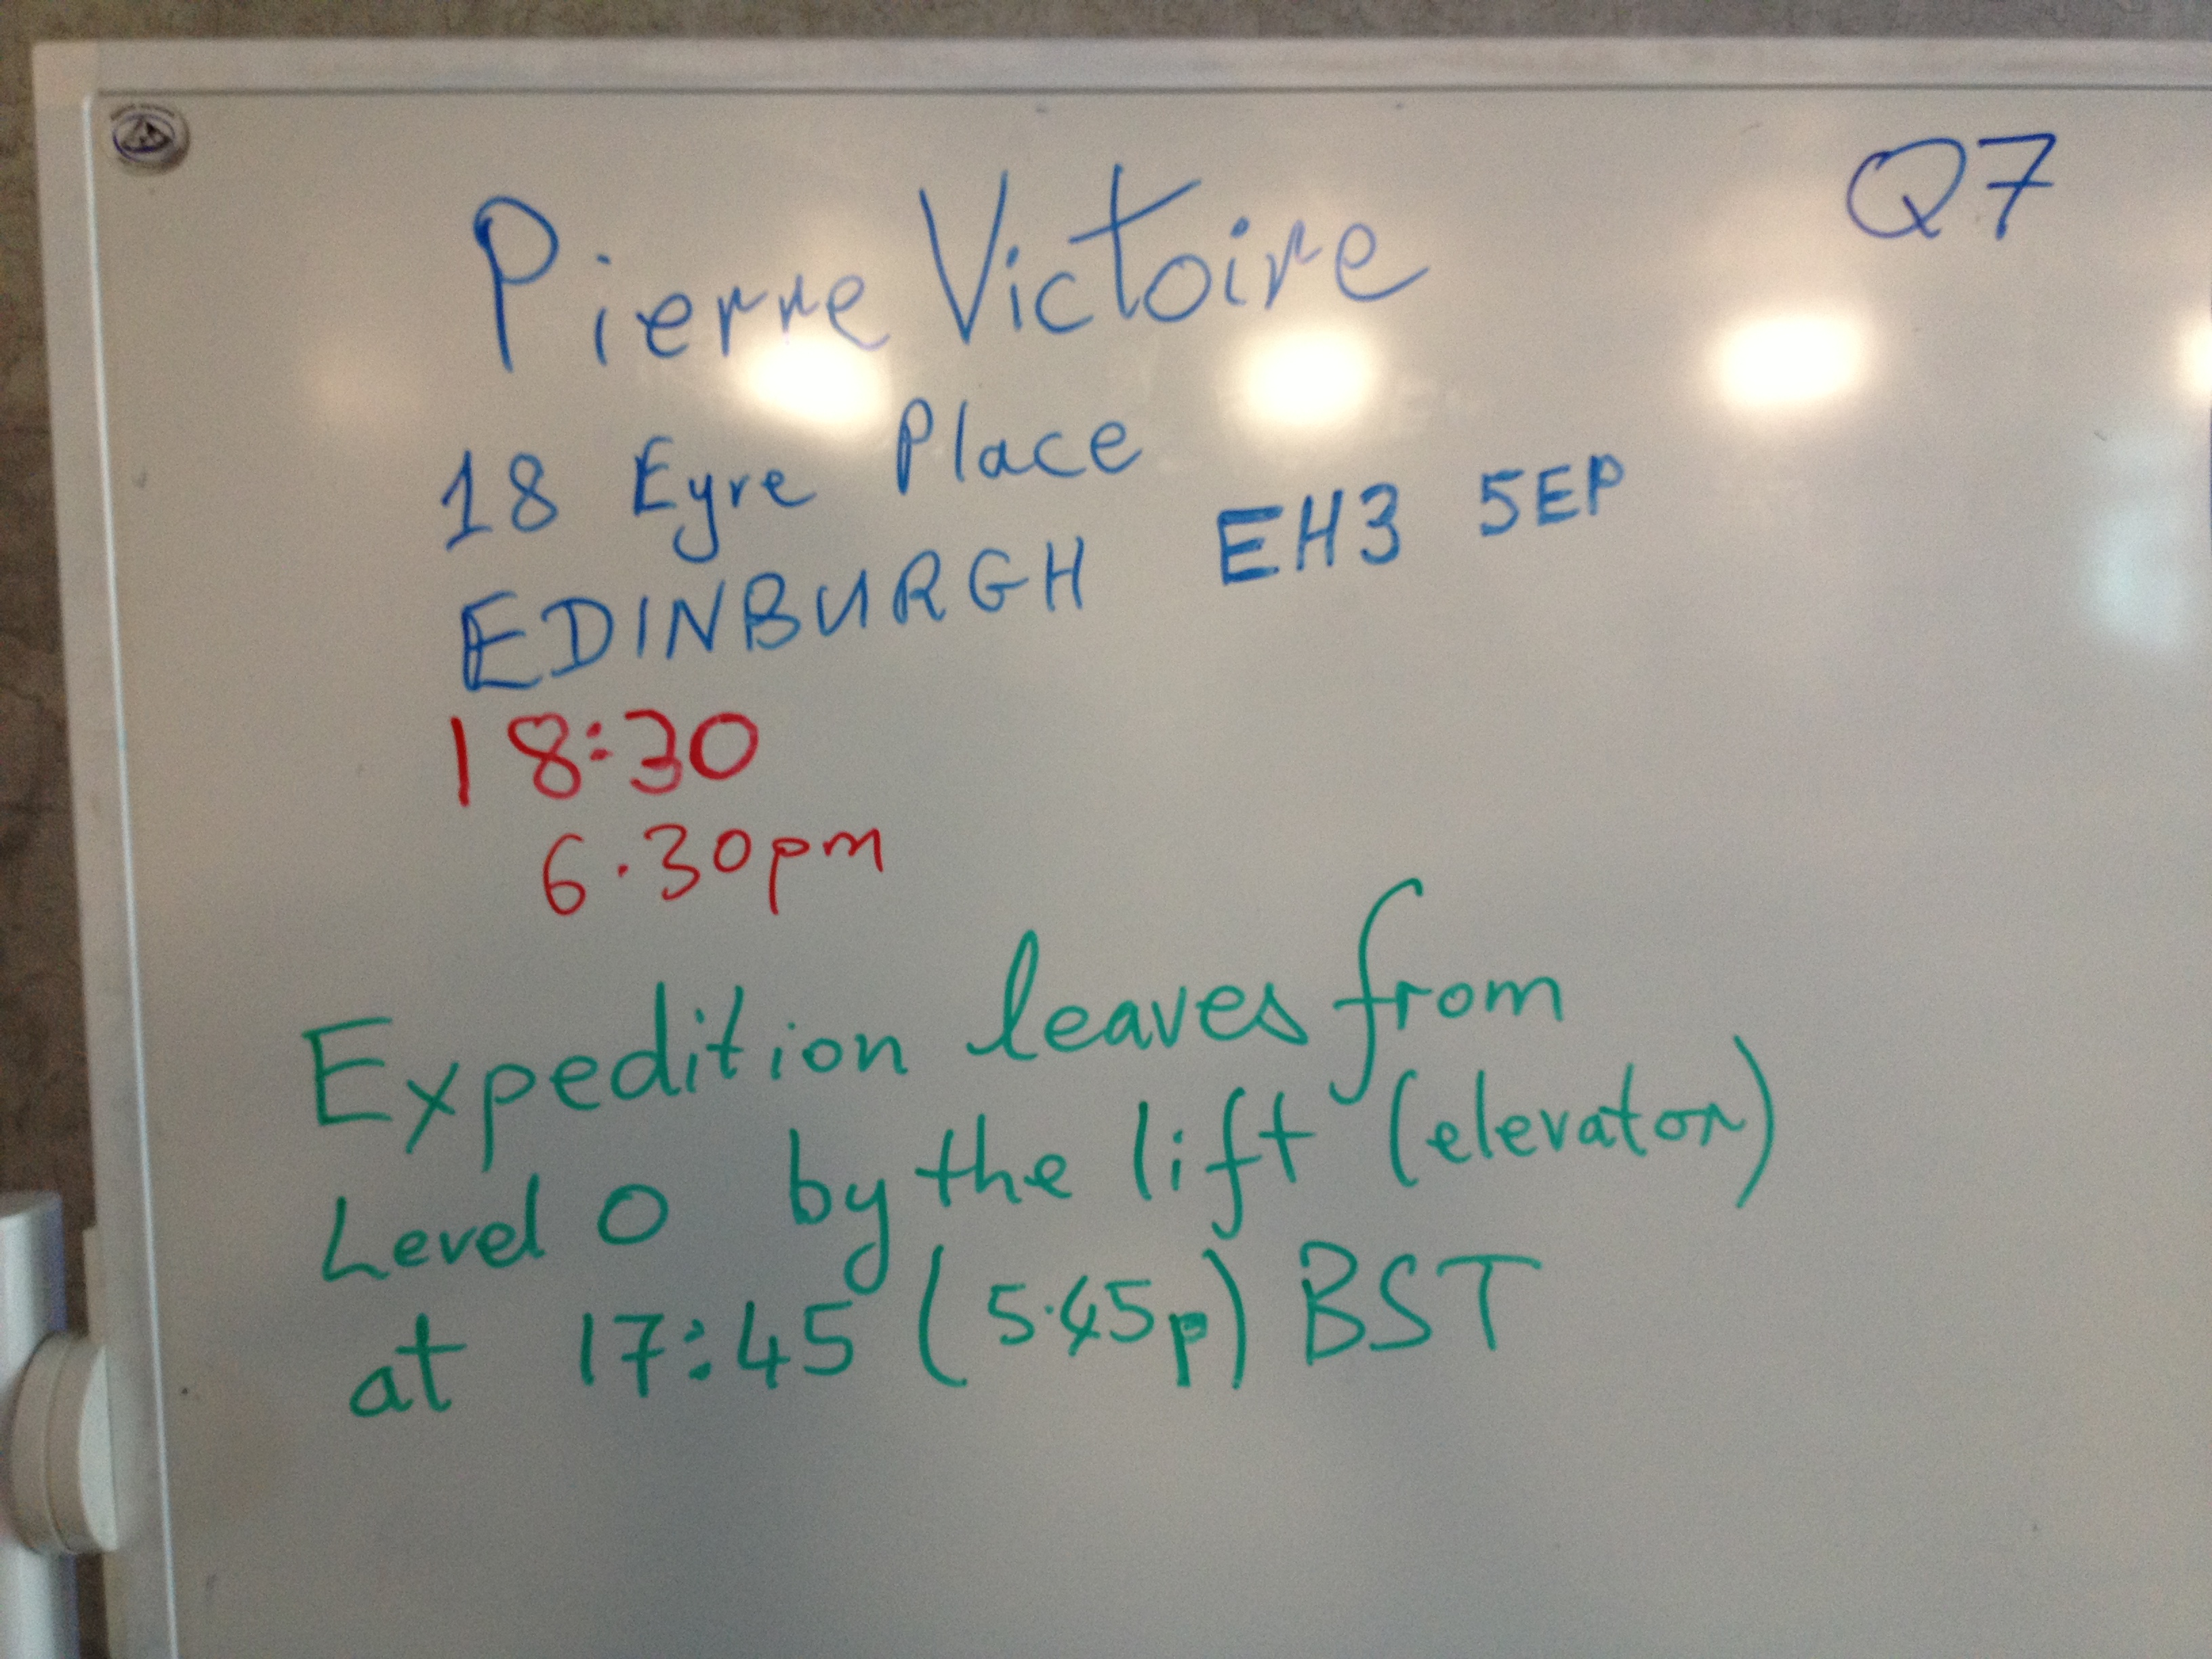 Q7
Pierre Victoire
18 Eyre Place
EDINBURGH EH3 5EP
18:30
6.30pm
Expedition leaves from
Level 0 by the lift (elevator)
at 17:45 (5.45p) BST